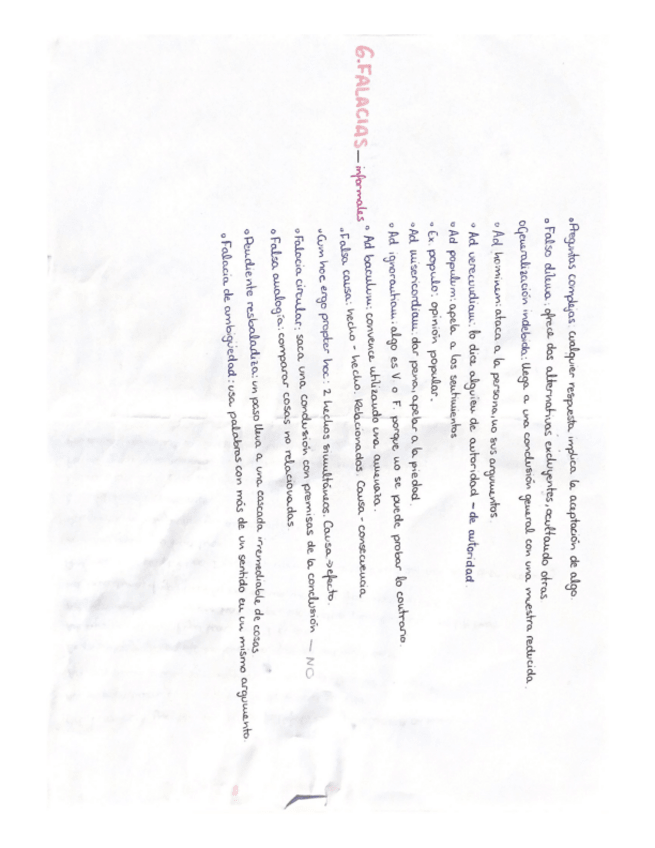 ◦ Preguntas complejas: cualquier respuesta implica la aceptación de algo.
◦ Falso dilema: ofrece dos alternativas excluyentes, ocultando otras
◦ Generalización indebida: llega a una conclusión general con una muestra reducida.
◦ Ad hominem: ataca a la persona, no sus argumentos.
◦ Ad verecundiam: lo dice alguien de autoridad - de autoridad.
◦ Ad populum: apela a los sentimientos
◦ Ex populo: opinión popular.
◦ Ad misericordiam: dar pena, apelar a la piedad.
◦ Ad ignorantiam: algo es V. o F. porque no se puede probar lo contrario.
6. FALACIAS - informales ◦ Ad baculum: convence utilizando una amenaza.
◦ Falsa causa: hecho - hecho. Relacionados. Causa - consecuencia
◦ Cum hoc ergo propter hoc: 2 hechos simultáneos. Causa → efecto.
◦ Falacia circular: saca una conclusión con premisas de la conclusión - NO
◦ Falsa analogía: comparar cosas no relacionadas
◦ Pendiente resbaladiza: un paso lleva a una cascada irremediable de cosas.
◦ Falacia de ambigüedad: usa palabras con más de un sentido en un mismo argumento.